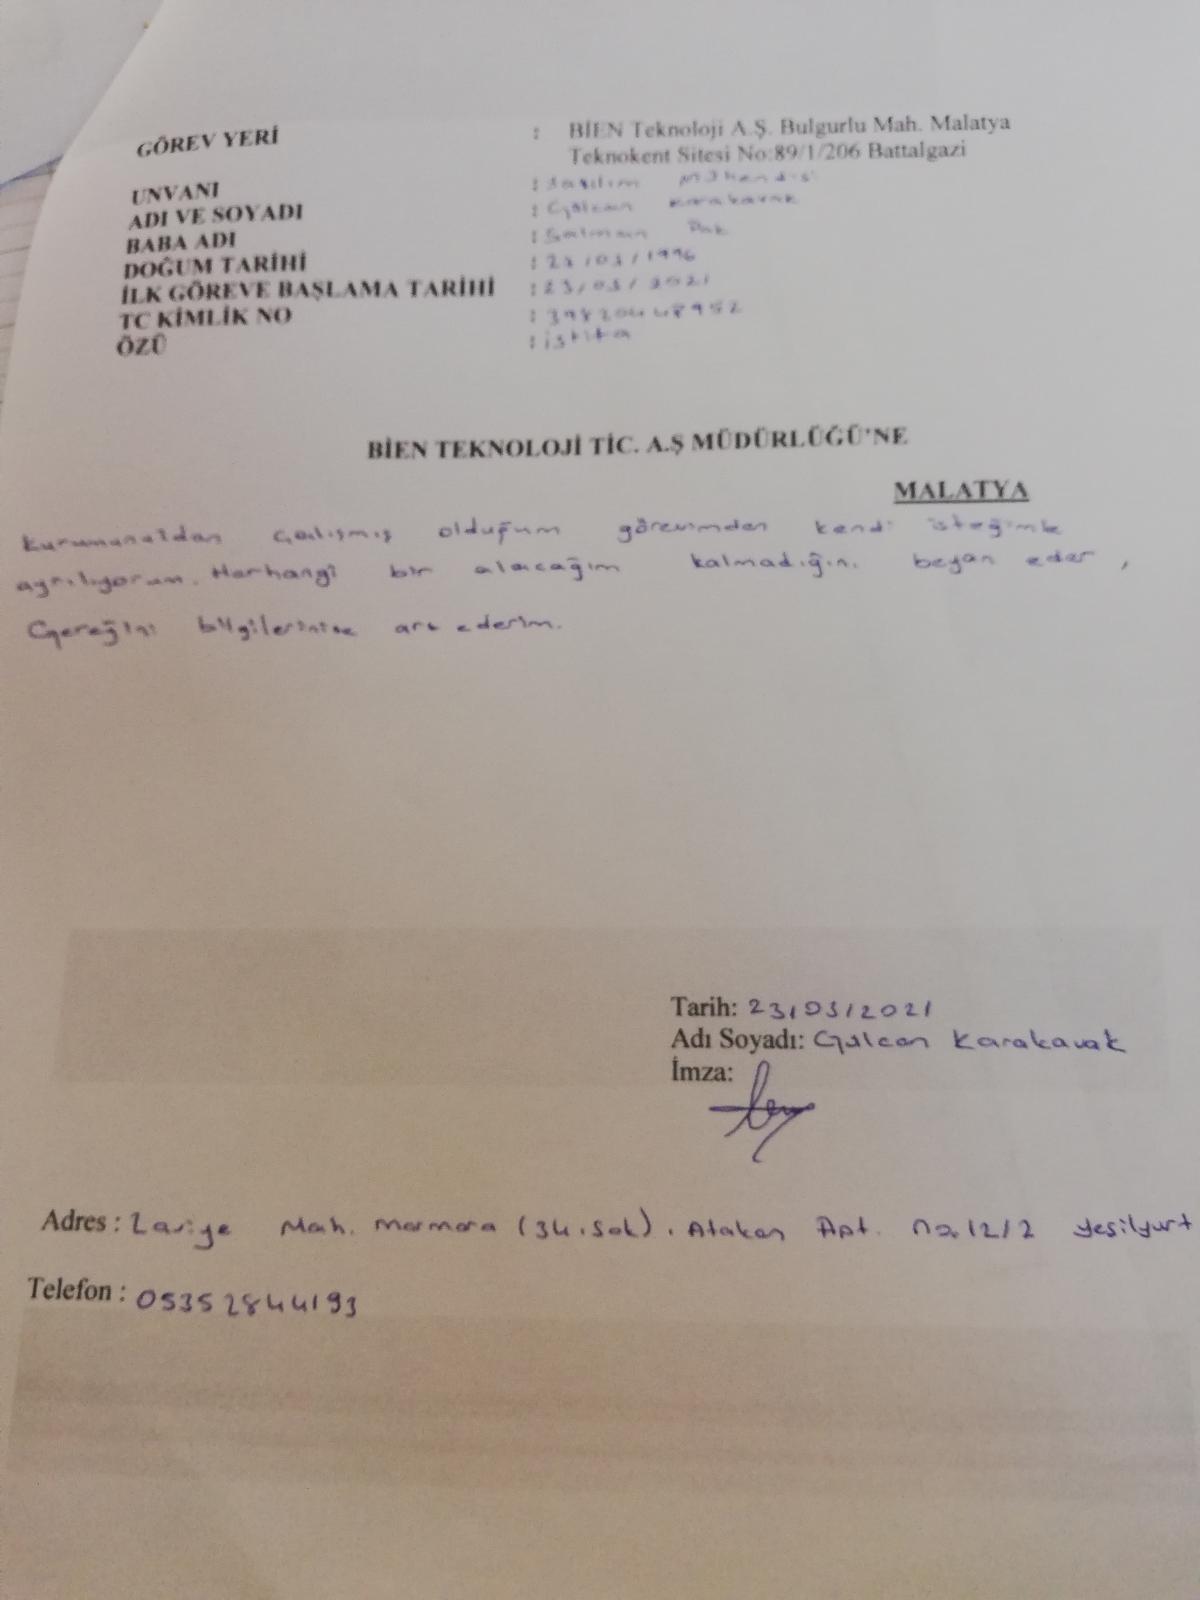 GÖREV YERİ : BİEN Teknoloji A.Ş. Bulgurlu Mah. Malatya
Teknokent Sitesi No:89/1/206 Battalgazi
UNVANI : Yazılım Mühendisi
ADI VE SOYADI : Gülcan Karakavak
BABA ADI : Salman
DOĞUM TARİHİ : /03/1996
İLK GÖREVE BAŞLAMA TARİHİ : 23/03/2021
TC KİMLİK NO : 39820448952
ÖZÜ : istifa
BİEN TEKNOLOJİ TİC. A.Ş MÜDÜRLÜĞÜ'NE
MALATYA
Kurumunuzdan çalışmış olduğum görevimden kendi isteğimle
ayrılıyorum. Herhangi bir alacağım kalmadığını beyan eder,
Gereğini bilgilerinize arz ederim.
Tarih: 23/03/2021
Adı Soyadı: Gülcan Karakavak
İmza:
Adres : Zaviye Mah. Marmara (34.Sok). Atakan Apt. no.12/2 Yeşilyurt
Telefon : 05352844193